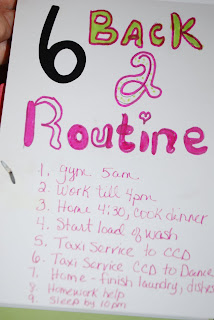 6 Back
2
Routine
1. gym 5am
2. Work till 4pm
3. Home 4:30, cook dinner
4. Start load of wash
5. Taxi Service to CCD
6. Taxi Service CCD to Dance
7. Home - finish laundry, dishes
8. Homework help
9. Sleep by 10pm